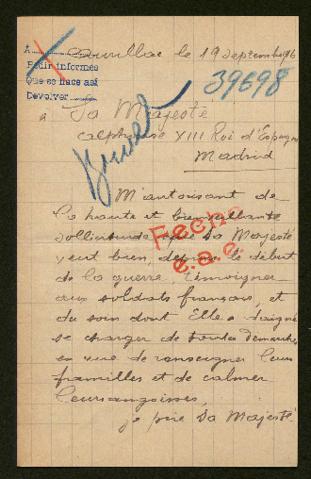 A
Pedir informes
Que se hace así
Devolver
Aurillac le 19 septembre 16
39698
à Sa Majesté
Alphonse XIII Roi d'Espagne
Madrid
M'autorisant de
la haute et bienveillante
sollicitude que Sa Majesté
veut bien, depuis le début
de la guerre, témoigner
aux soldats français, et
du soin dont Elle a daigné
se charger de toutes démarches
en vue de renseigner leurs
familles et de calmer
leurs angoisses,
je prie Sa Majesté
Fecho
e.a.c.